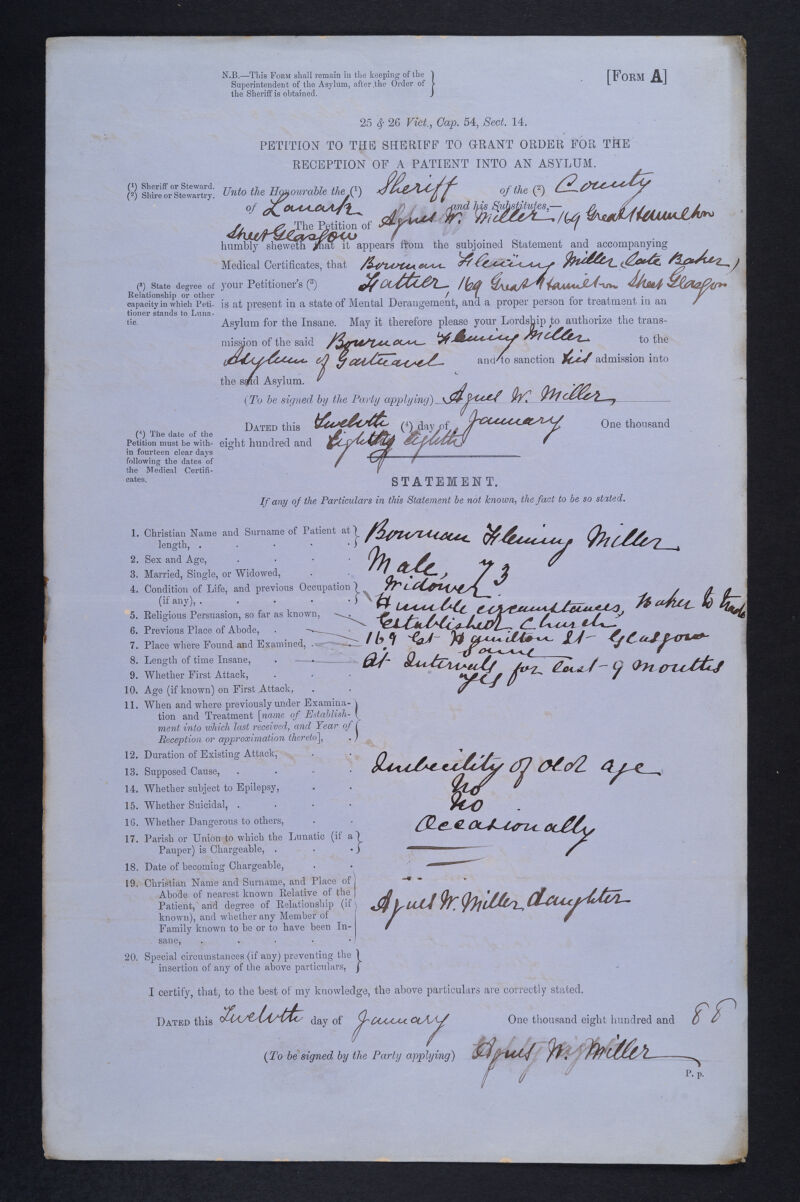 N.B.—This Form shall remain in the keeping of the
Superintendent of the Asylum, after the Order of
the Sheriff is obtained.
[Form A]
25 & 26 Vict., Cap. 54, Sect. 14.
PETITION TO THE SHERIFF TO GRANT ORDER FOR THE
RECEPTION OF A PATIENT INTO AN ASYLUM.
(1) Sheriff or Steward.
(2) Shire or Stewartry.
Unto the Honourable the (1) Sheriff of the (2) County
of Lanark and his Substitutes,—
The Petition of Agnes W. Miller 169 Great Hamilton
Street Glasgow
humbly sheweth that it appears from the subjoined Statement and accompanying
Medical Certificates, that Bowman Fleming Miller (late Baker)
(3) State degree of
Relationship or other
capacity in which Peti-
tioner stands to Luna-
tic.
your Petitioner's (3) Father, 169 Great Hamilton Street Glasgow
is at present in a state of Mental Derangement, and a proper person for treatment in an
Asylum for the Insane. May it therefore please your Lordship to authorize the trans-
mission of the said Bowman Fleming Miller to the
Asylum of Gartnavel and to sanction his admission into
the said Asylum.
(To be signed by the Party applying) Agnes W. Miller
(4) The date of the
Petition must be with-
in fourteen clear days
following the dates of
the Medical Certifi-
cates.
Dated this Twelvth (4) day of January One thousand
eight hundred and Eighty Eighth
STATEMENT.
If any of the Particulars in this Statement be not known, the fact to be so stated.
1. Christian Name and Surname of Patient at
length, . Bowman Fleming Miller
2. Sex and Age, Male, 73
3. Married, Single, or Widowed, Widower
4. Condition of Life, and previous Occupation
(if any), . Humble circumstances, Baker to trade
5. Religious Persuasion, so far as known, Established Church
6. Previous Place of Abode, 169 Gt Hamilton St Glasgow
7. Place where Found and Examined, Same
8. Length of time Insane, At Intervals for last 9 mouths
9. Whether First Attack, Yes
10. Age (if known) on First Attack,
11. When and where previously under Examina-
tion and Treatment [name of Establish-
ment into which last received, and Year of
Reception or approximation thereto],
12. Duration of Existing Attack,
13. Supposed Cause, Imbecility of old age
14. Whether subject to Epilepsy, No
15. Whether Suicidal, No
16. Whether Dangerous to others, Occasionally
17. Parish or Union to which the Lunatic (if a
Pauper) is Chargeable,
18. Date of becoming Chargeable,
19. Christian Name and Surname, and Place of
Abode of nearest known Relative of the
Patient, and degree of Relationship (if
known), and whether any Member of
Family known to be or to have been In-
sane, Agnes W. Miller, daughter
20. Special circumstances (if any) preventing the
insertion of any of the above particulars,
I certify, that, to the best of my knowledge, the above particulars are correctly stated.
Dated this Twelvth day of January One thousand eight hundred and 88
(To be signed by the Party applying) Agnes W. Miller
P. p.